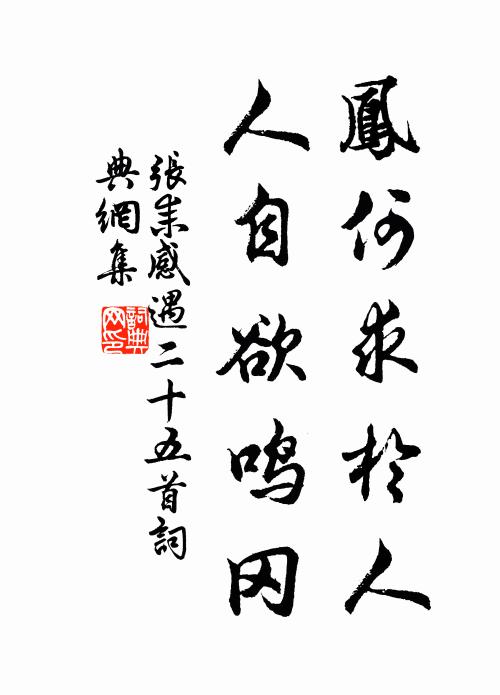 鳳何求於人
人自欲鸣冈
張耒感遇二十五首詞
典網集
詞典
网印